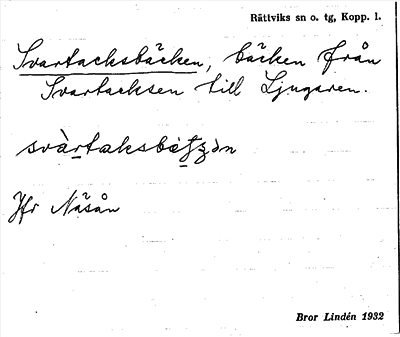 Rättviks sn o. tg, Kopp. l.
Svartacksbäcken, bäcken från
Svartacksen till Ljugaren.
Jfr Näsån
Bror Lindén 1932